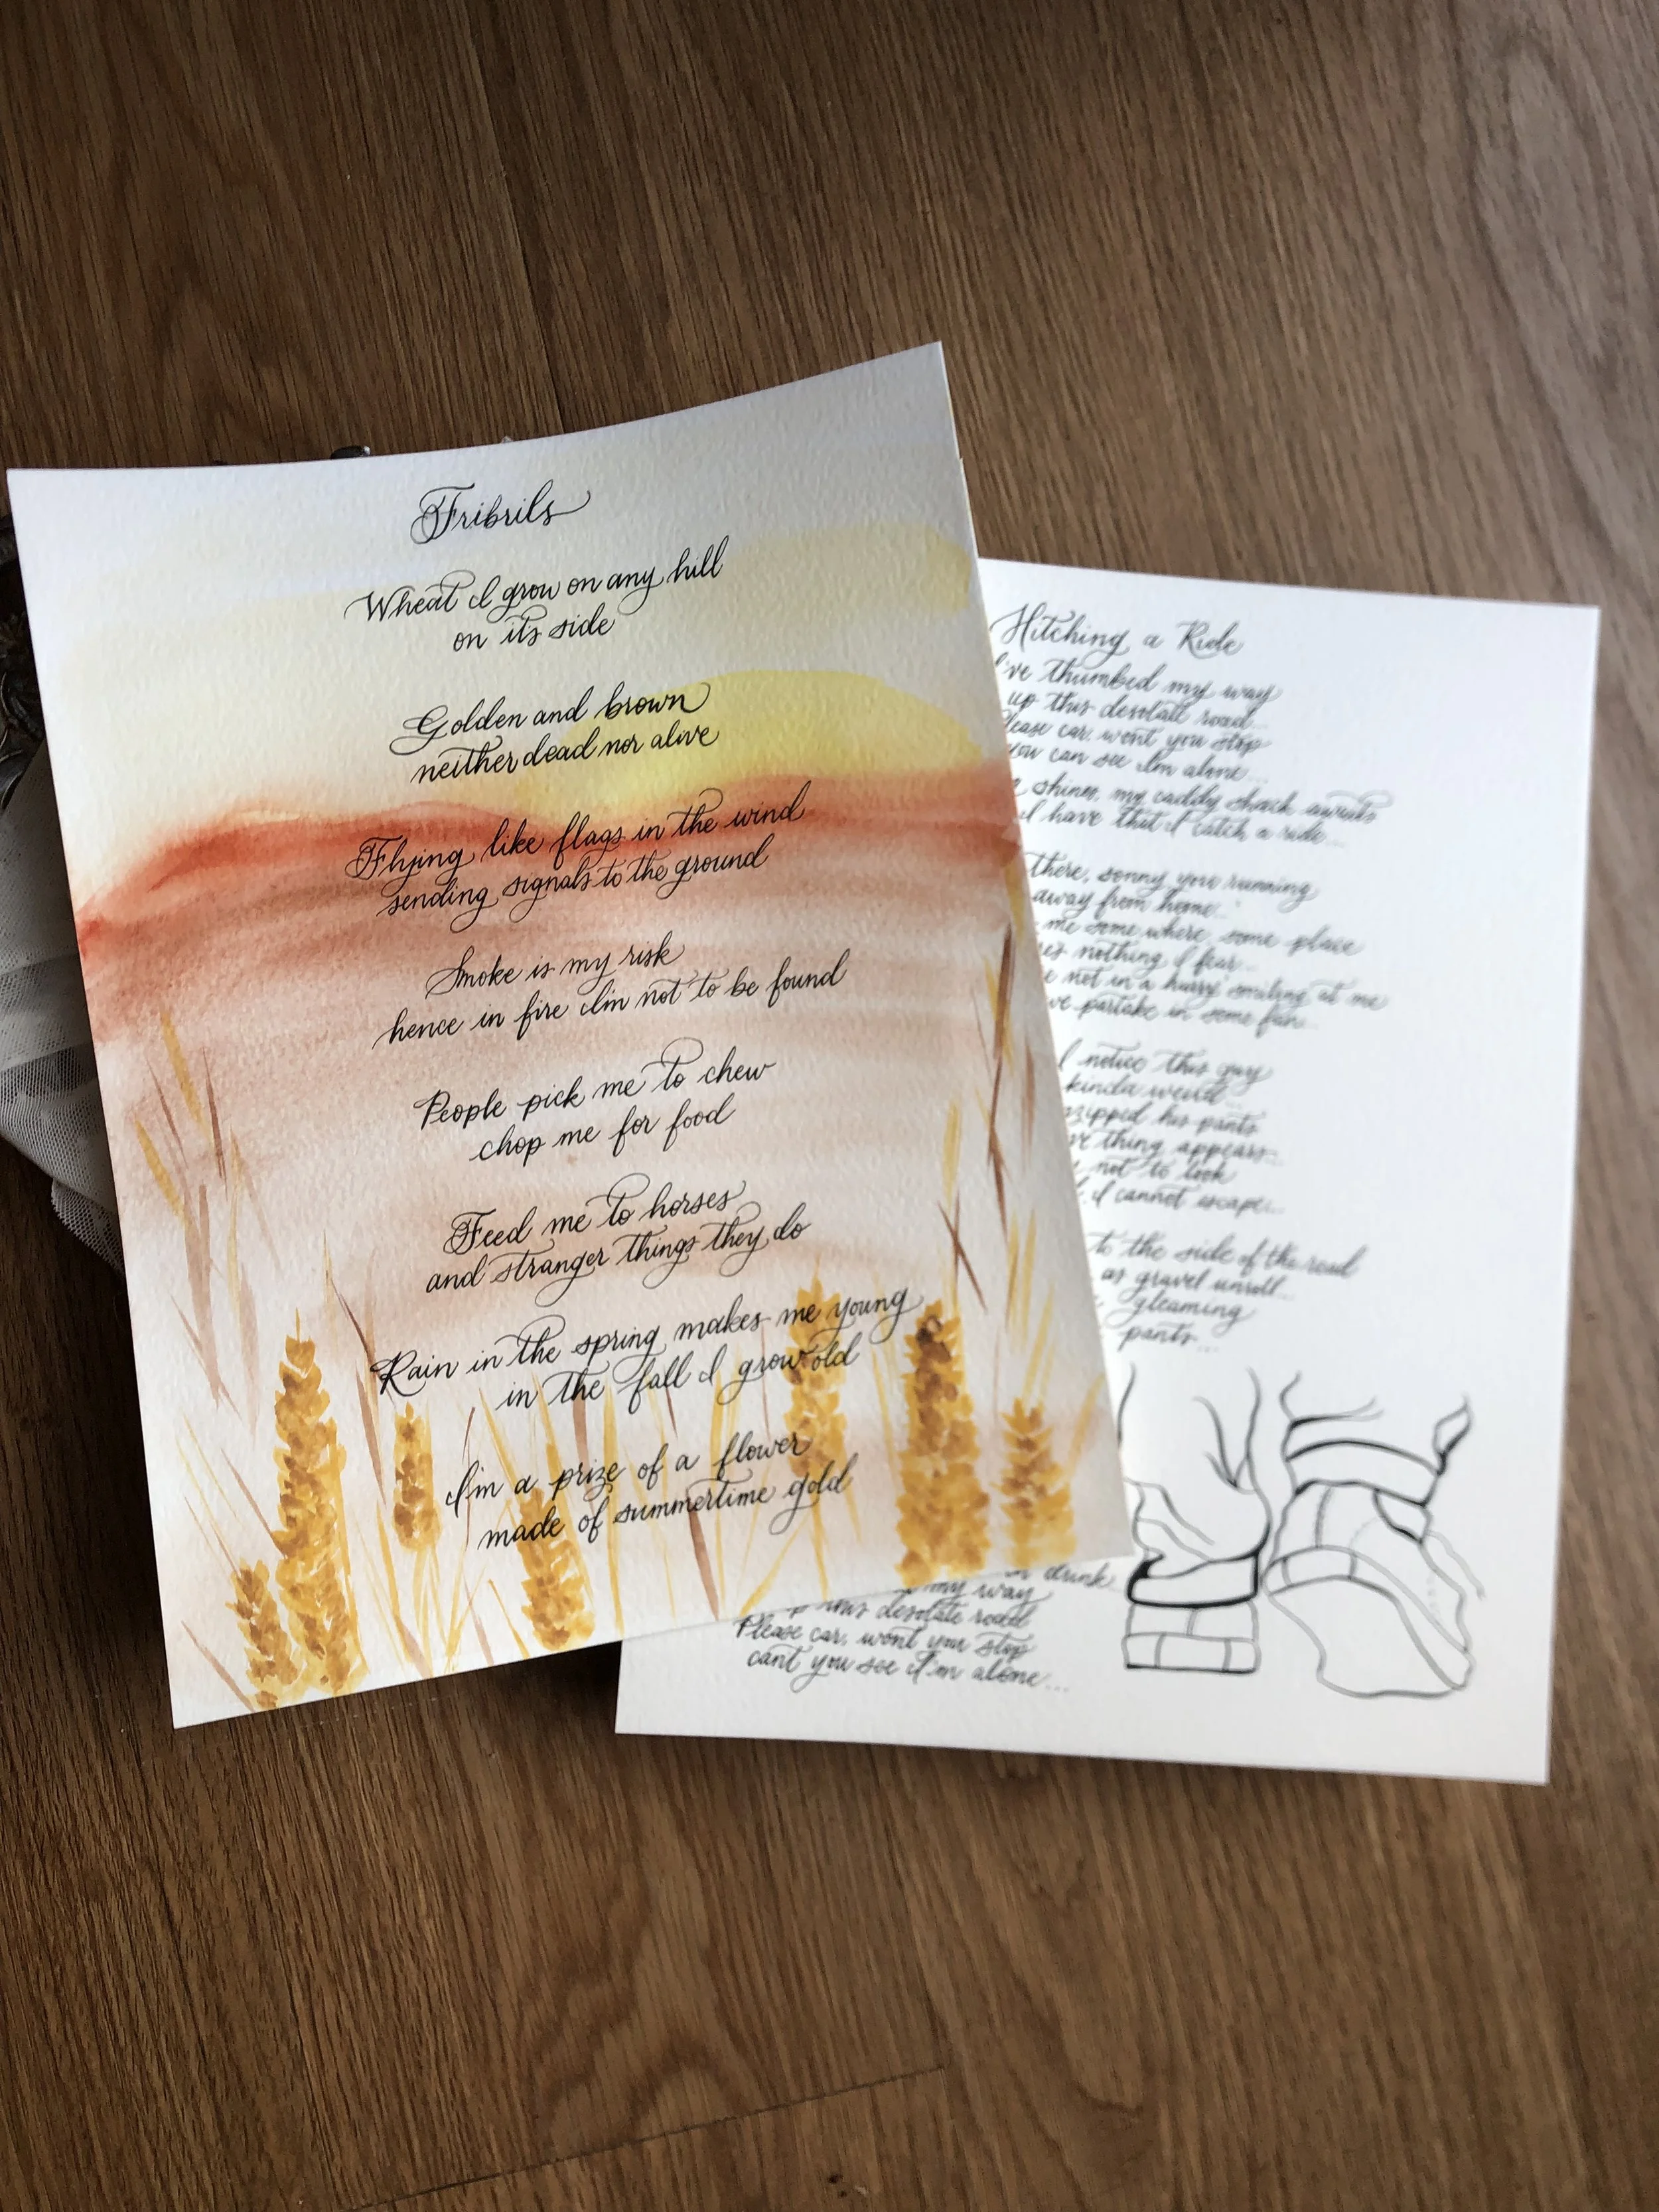 Fribrils
Wheat I grow on any hill
on its side
Golden and brown
neither dead nor alive
Flying like flags in the wind
sending signals to the ground
Smoke is my risk
hence in fire I'm not to be found
People pick me to chew
chop me for food
Feed me to horses
and stranger things they do
Rain in the spring makes me young
in the fall I grow old
I'm a prize of a flower
made of summertime gold
Hitching a Ride
I've thumbed my way
up this desolate road...
Please car, wont you stop
you can see I'm alone...
shines, my caddy shack awaits
I have that I catch a ride...
there, sonny you running
away from home...
me some where some place
nothing I fear...
not in a hurry smiling at me
partake in some fun...
I notice this guy
kinda weird
unzipped his pants
thing appears...
not to look
I cannot escape...
to the side of the road
as gravel unroll...
gleaming
pants...
drink
my way
up this desolate road
Please car, wont you stop
cant you see I'm alone...